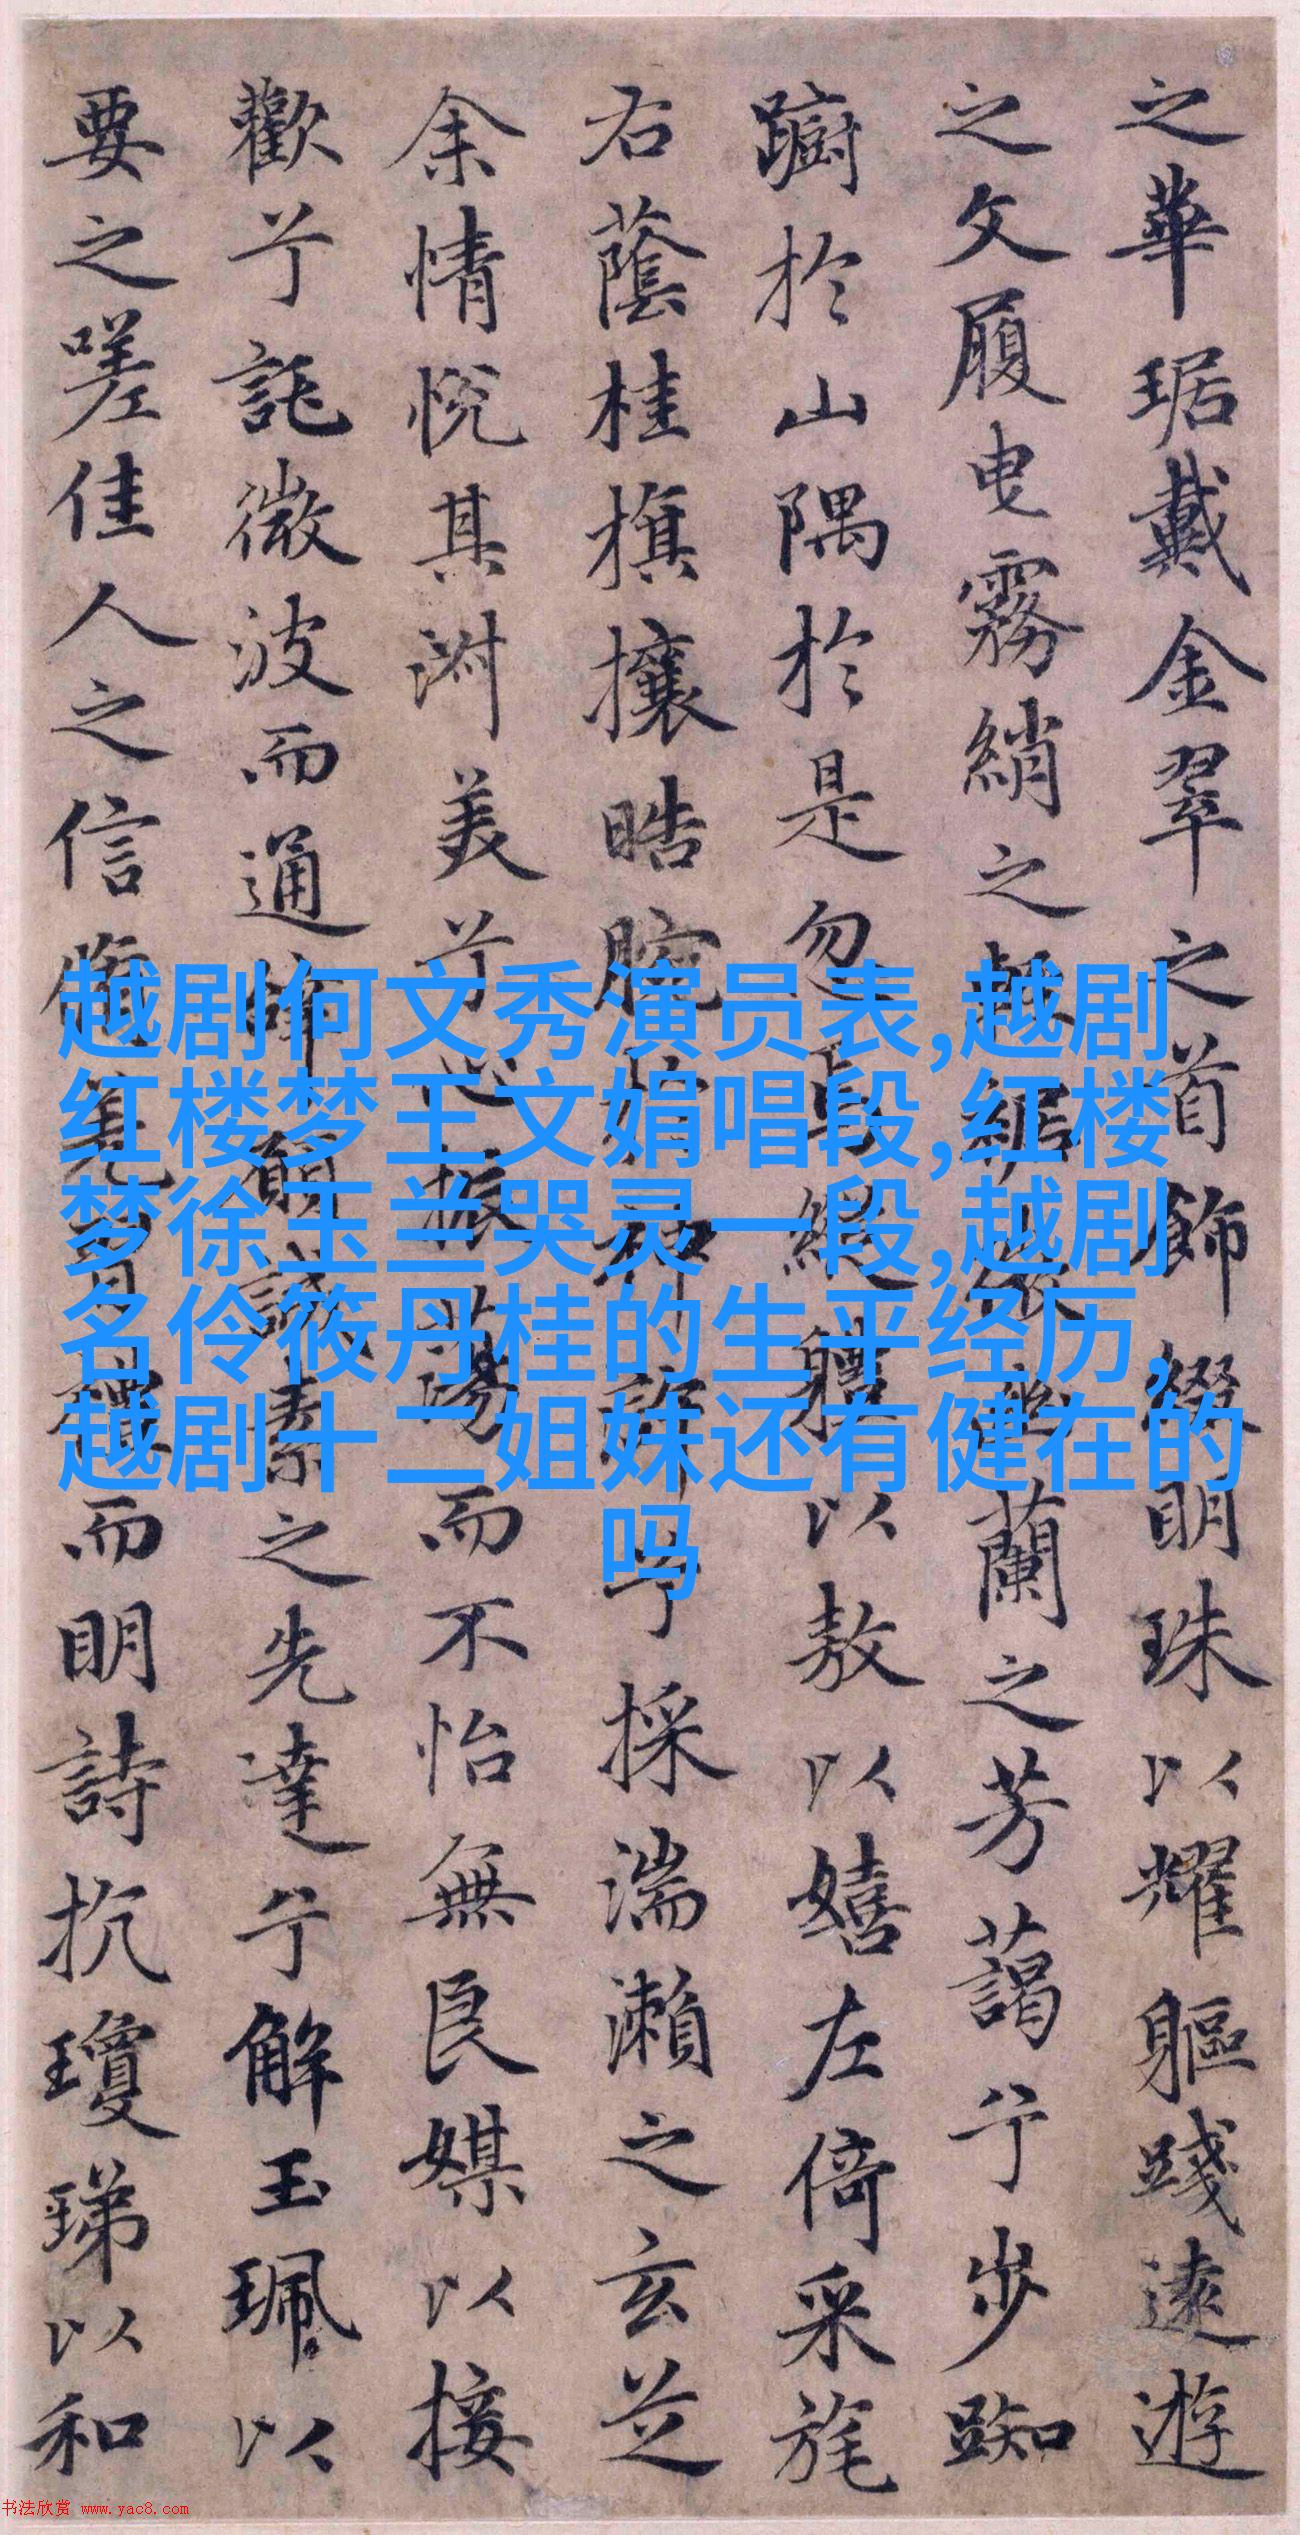 之華琚戴金翠之首飾綴明珠以耀軀踐遠遊
之文履曳霧綃之輕裾微幽蘭之芳藹兮步踟
躕於山隅於是忽焉縱軆以敖以嬉左倚采旄
右蔭桂旗攘皓腕於神滸兮採湍瀨之玄芝
余情悅其淑美兮心振蕩而不怡無良媒以接
歡兮託微波而通辭願誠素之先達兮解玉珮以
要之嗟佳人之信脩羌習禮而明詩抗瓊珶以和
越剧何文秀演员表,越剧
红楼梦王文娟唱段,红楼
梦徐玉兰哭灵一段,越剧
名伶筱丹桂的生平经历,
越剧十二姐妹还有健在的
吗
书法欣赏 www.yac8.com